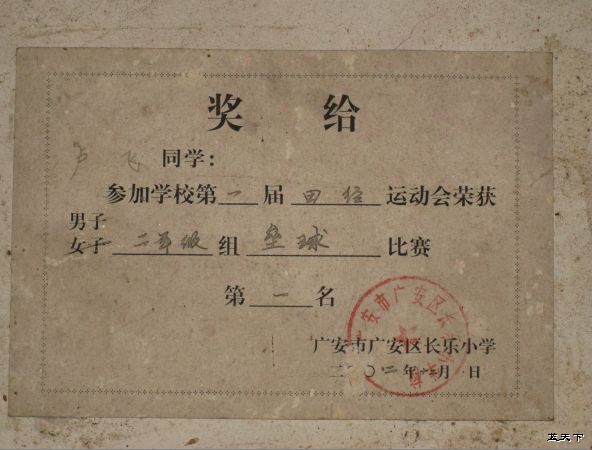 奖 给
卢飞 同学：
参加学校第一届田径运动会荣获
男子
女子 二年级 组 垒球 比赛
第一名
广安市广安区长乐小学
二〇〇二年十二月 日
广安市广安区长乐小学
蓝天下